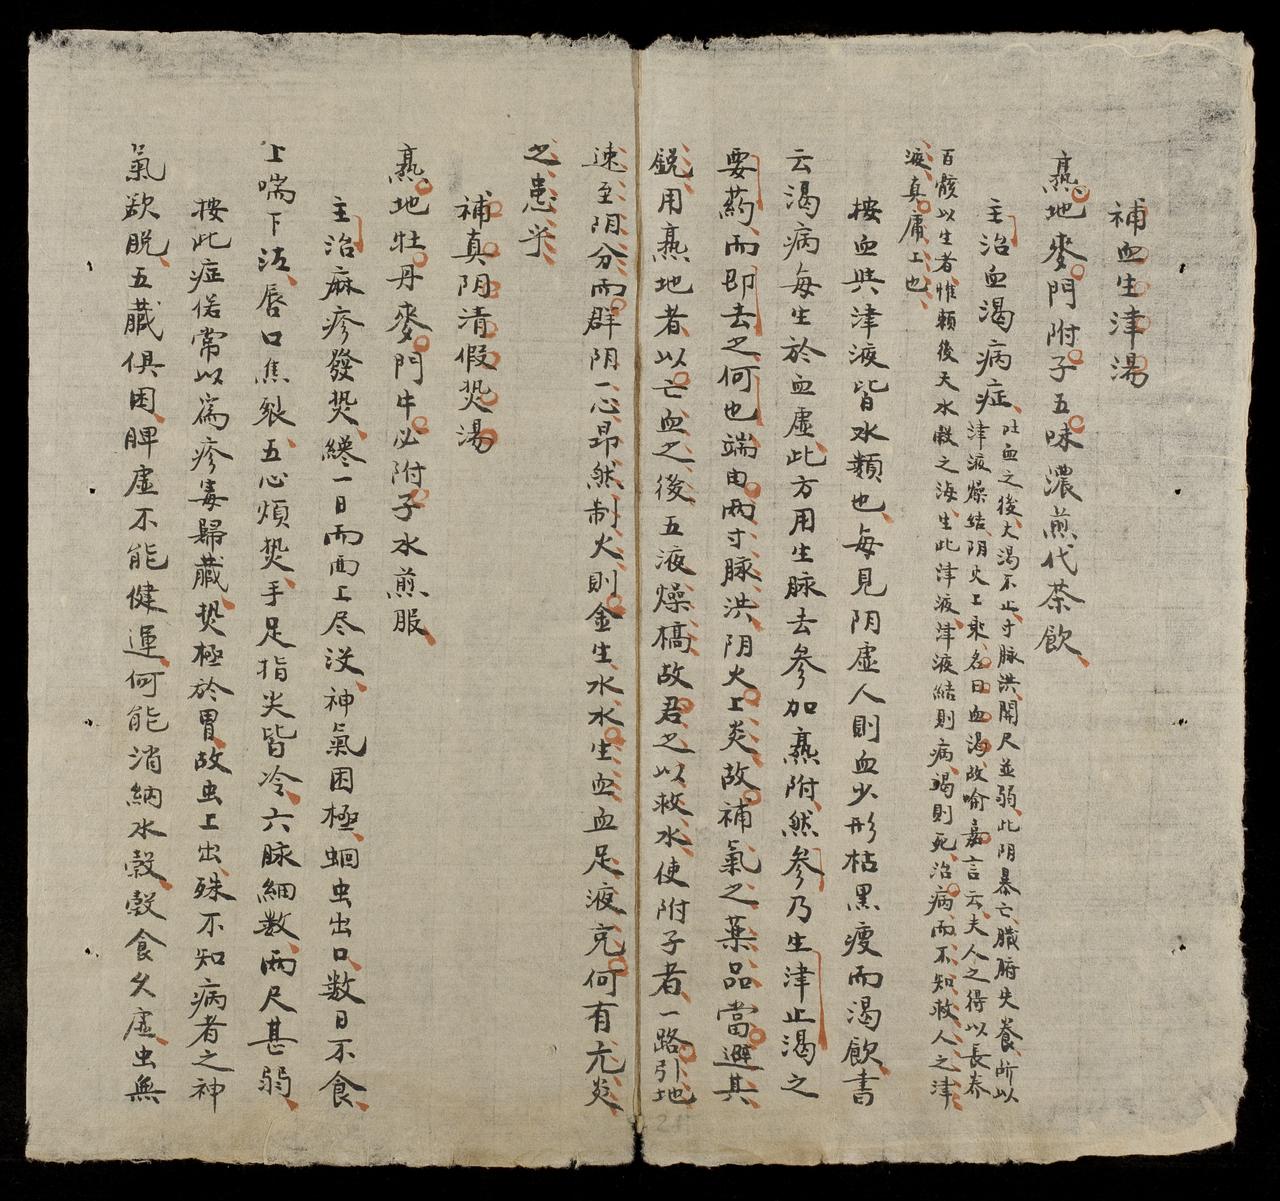 補血生津湯
熟地麥門附子五味濃煎代茶飲
主治血渴病症
吐血之後大渴不止寸脉洪關尺並弱此阴暴亡臟腑失養所以
津液燥結阴火上乘名曰血渴故喻嘉言云夫人之得以長养
百骸以生者惟賴後天水穀之海生此津液津液結則病竭則死治病而不知救人之津
液真庸工也
按血與津液皆水類也每見阴虛人則血少形枯黑瘦而渴飲書
云渴病每生於血虛此方用生脉去參加熟附然參乃生津止渴之
要药而即去之何也端由兩寸脉洪阴火上炎故補氣之葉品當避其
鋭用熟地者以亡血之後五液燥槁故君之以救水使附子者一路引地
速至阴分而群阴一心昂然制火則金生水水生血血足液充何有亢炎
之患乎
補真阴清假㷫湯
熟地牡丹麥門牛必附子水煎服
主治麻疹發㷫纔一日而面上尽没神氣困極蛔虫出口数日不食
上喘下泻唇口焦裂五心煩㷫手足指尖皆冷六脉細数兩尺甚弱
按此症偌常以為疹毒歸藏㷫極於胃故虫上出殊不知病者之神
氣欲脱五臟俱困脾虛不能健運何能消納水穀穀食久虛虫無